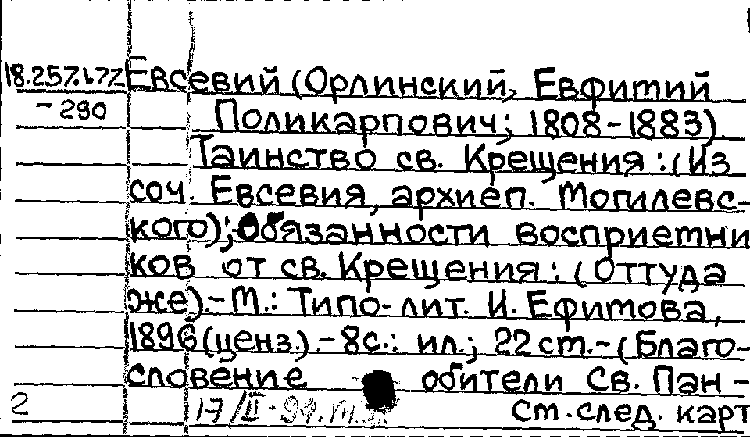 18.257.6.77 Евсевий (Орлинский, Евфитий
-290 Поликарпович; 1808-1883)
Таинство св. Крещения: (Из
соч. Евсевия, архиеп. Могилевс-
кого); Обязанности восприетни
ков от св. Крещения: (Оттуда
же).- М.: Типо-лит. И. Ефимова,
1896 (ценз.).- 8с.: ил.; 22 ст.- (Благо-
словение обители Св. Пан-
2 17/II-
ст. след. карт